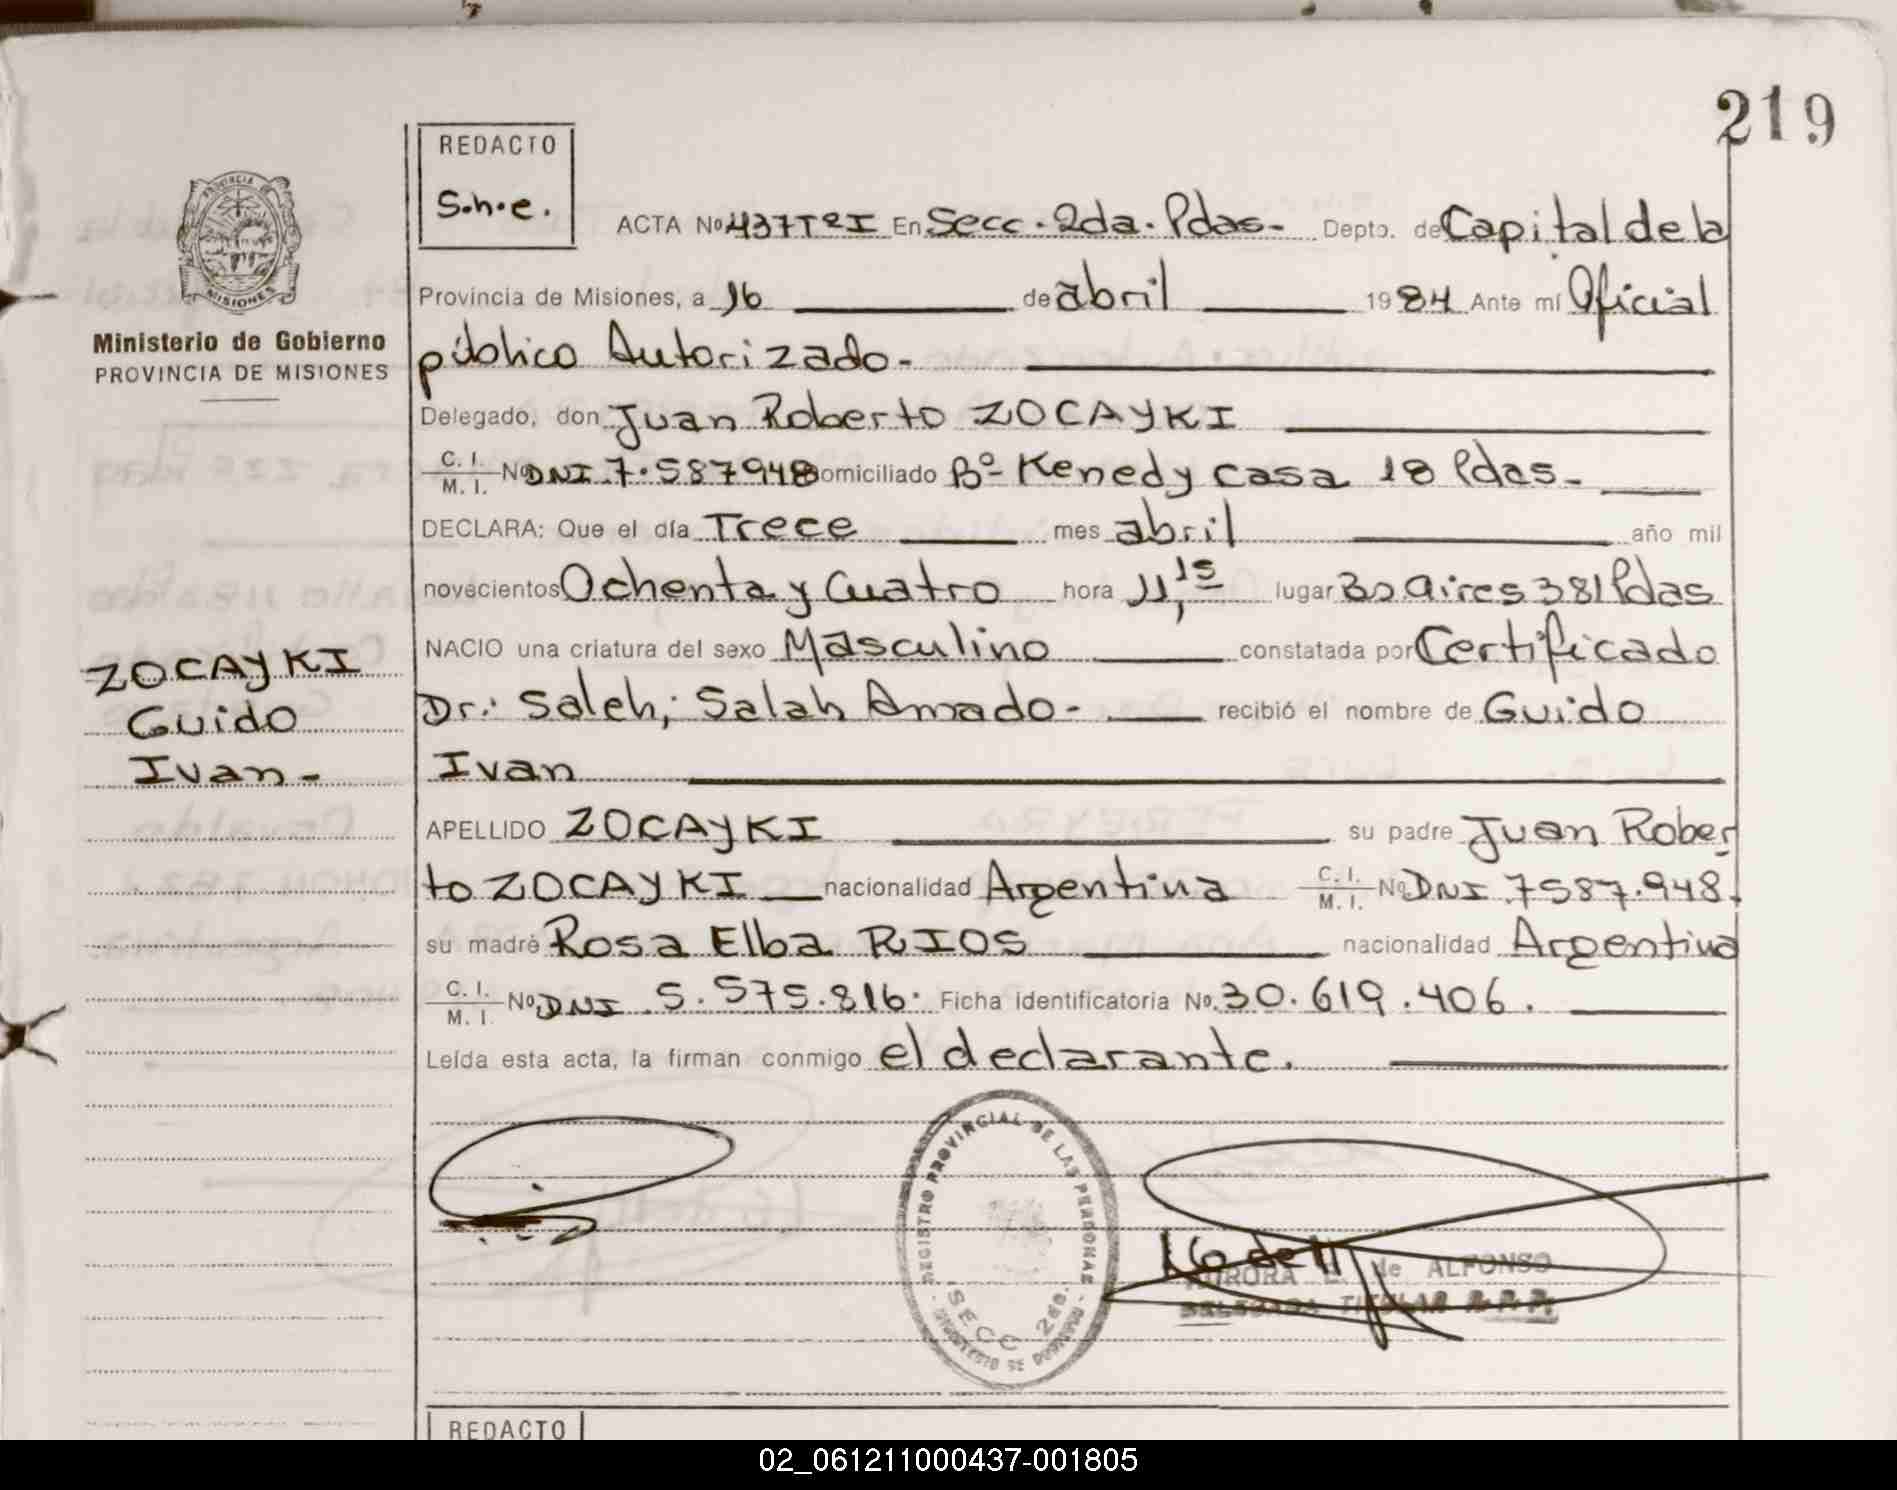 219
REDACTO
S.h.e.
PROVINCIA
MISIONES
Ministerio de Gobierno
PROVINCIA DE MISIONES
ACTA No 437T2I En Secc. 2da. Pdas- Depto. de Capital de la
Provincia de Misiones, a 16 de abril 1984 Ante mí Oficial
público Autorizado-
Delegado, don Juan Roberto ZOCAYKI
C. I. / M. I. No DNI. 7.587948 Domiciliado Bº Kenedy casa 18 Pdas-
DECLARA: Que el día Trece mes abril año mil
novecientos Ochenta y Cuatro hora 11,15 lugar Bs Aires 381 Pdas
NACIO una criatura del sexo Masculino constatada por Certificado
Dr: Saleh, Salah Amado- recibió el nombre de Guido
Ivan
ZOCAYKI
Guido
Ivan-
APELLIDO ZOCAYKI su padre Juan Rober
to ZOCAYKI nacionalidad Argentina C. I. / M. I. No DNI. 7587.948.
su madre Rosa Elba RIOS nacionalidad Argentina
C. I. / M. I. No DNI. 5.575.816. Ficha identificatoria No. 30.619.406.
Leída esta acta, la firman conmigo el declarante.
REGISTRO PROVINCIAL DE LAS PERSONAS
SECC 2da.
AURORA de ALFONSO
DELEGADA TITULAR R.P.P.
REDACTO
02_061211000437-001805